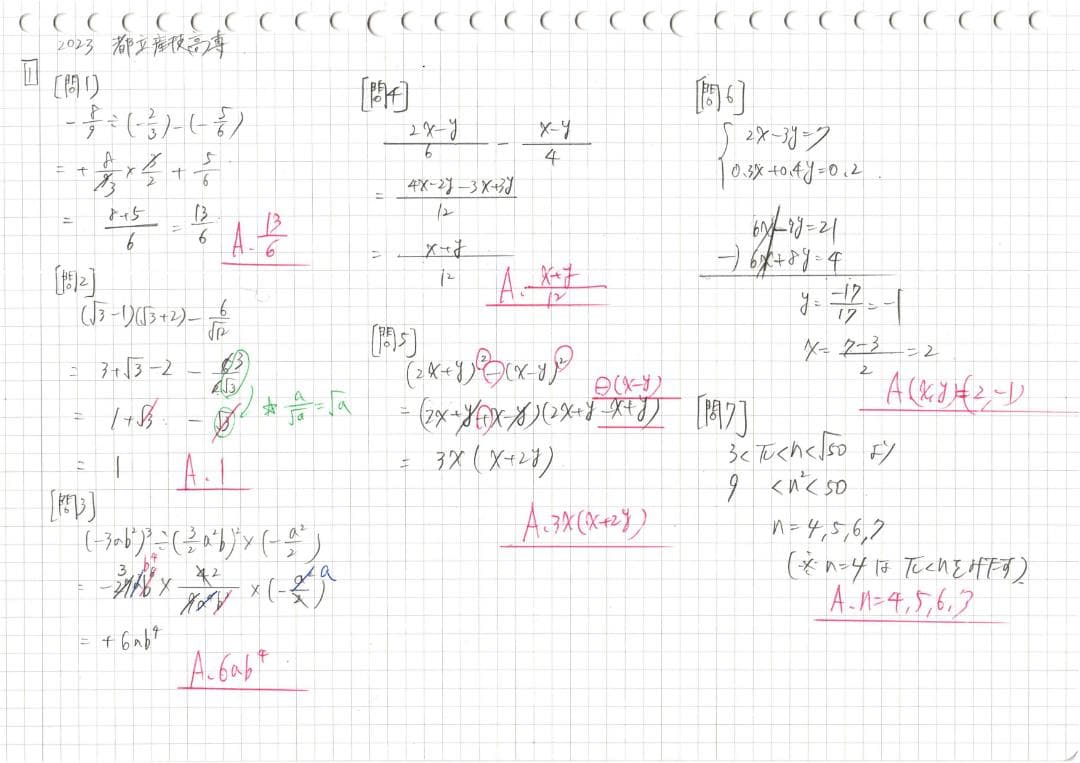 2023 都立産技高専
1
[問1]
-8/9÷(-2/3)-(-5/6)
=+8/9 3×3/2+5/6
=8+5/6=13/6
A.13/6
[問2]
(√3-1)(√3+2)-6/√12
=3+√3-2-6 3/2√3
=1+√3-√3 ☆a/√a=√a
=1
A.1
[問3]
(-3ab²)³÷(3/2a²b)²×(-a²/2)
×(-a²/2) a
=+6ab⁴
A.6ab⁴
[問4]
2x-y/6-x-y/4
=4x-2y-3x+3y/12
=x+y/12
A.x+y/12
[問5]
(2x+y)²-(x-y)²
⊖(x-y)
=(2x+y+x-y)(2x+y-x+y)
=3x(x+2y)
A.3x(x+2y)
[問6]
2x-3y=7
0.3x+0.4y=0.2
6x-9y=21
-)6x+8y=4
y=-17/17=-1
x=7-3/2=2
A(x,y)=(2,-1)
[問7]
3<π<n<√50 より
9 <n²<50
n=4,5,6,7
(※n=4はπ<nをみたす)
A.n=4,5,6,7